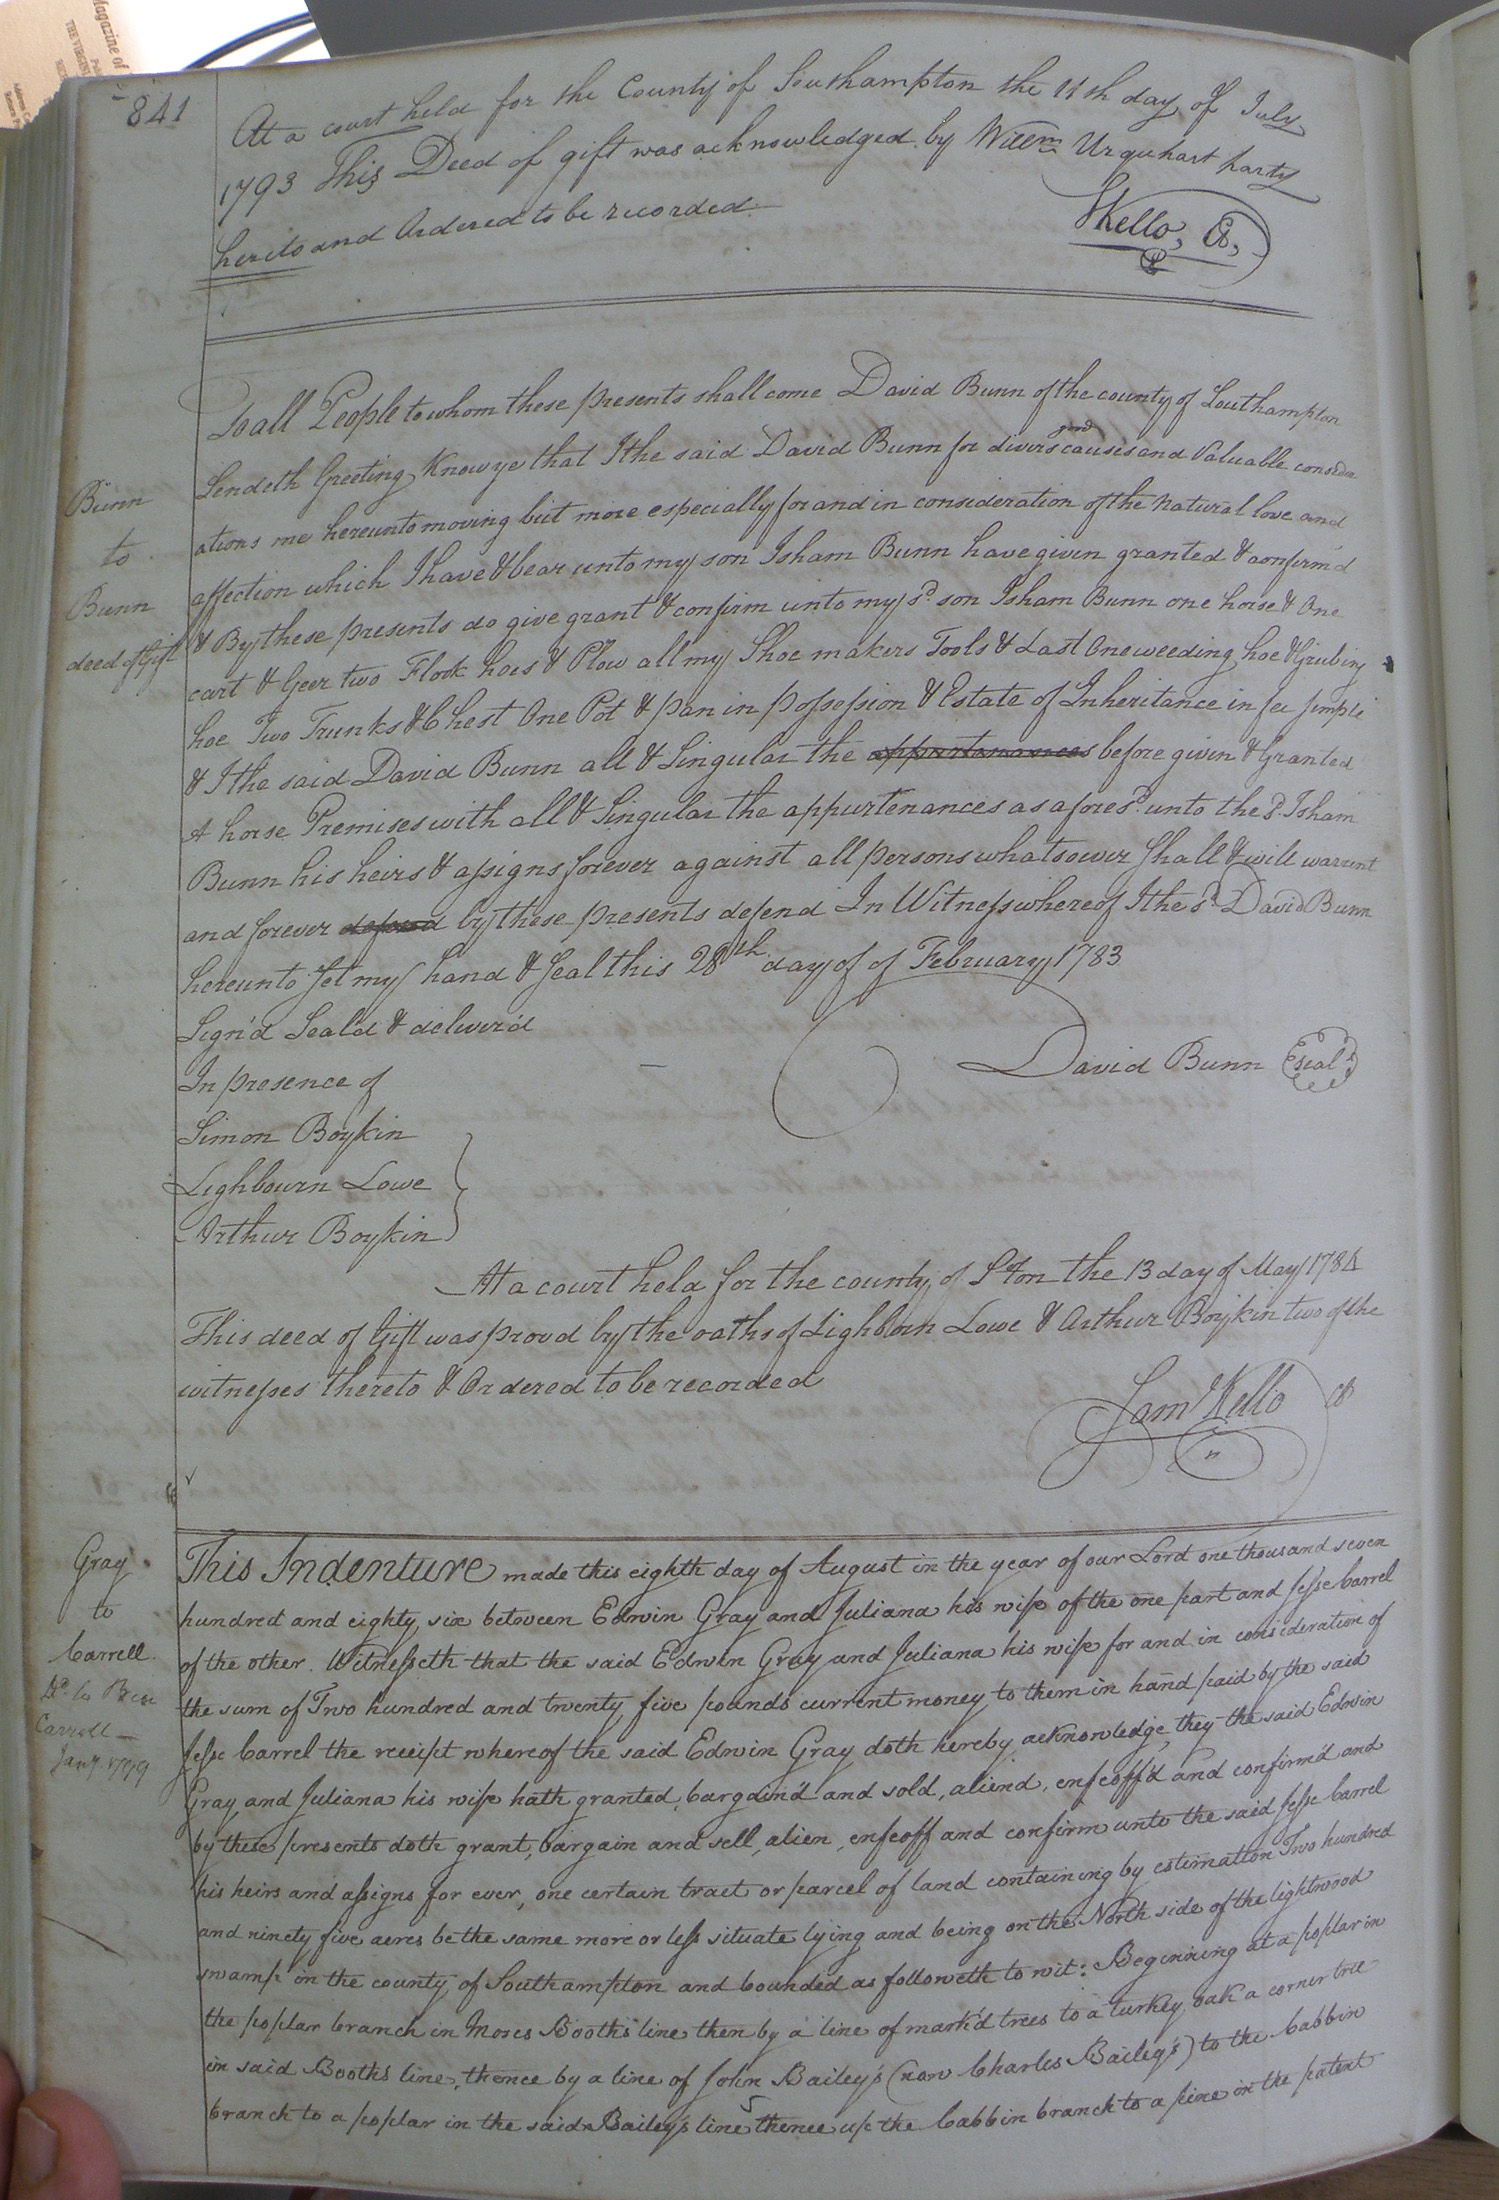 Magazine of
THE VIRGIN
841
At a court held for the County of Southampton the 11th day of July
1793 This Deed of gift was acknowledged by Willm Urquhart party
hereto and Ordered to be recorded
SKello, Cl,
To all People to whom these presents shall come David Bunn of the county of Southampton
Sendeth Greeting Know ye that I the said David Bunn for divers good causes and Valuable consider
ations me hereunto moving but more especially for and in consideration of the natural love and
affection which I have & bear unto my son Isham Bunn have given granted & confirm'd
& By these presents do give grant & confirm unto my sd. son Isham Bunn one horse & One
cart & Geer two Flook hoes & Plow all my Shoe makers Tools & Last One weeding hoe & Grubing
hoe Two Trunks & Chest One Pot & pan in possession & Estate of Inheritance in fee simple
& I the said David Bunn all & Singular the appurtenances before given & Granted
A horse Premises with all & Singular the appurtenances as afores'd. unto the sd. Isham
Bunn his heirs & assigns forever against all persons whatsoever shall & will warrent
and forever defend by these presents defend In Witness whereof I the sd. David Bunn
hereunto set my hand & seal this 28th day of of February 1783
Sign'd Seal'd & deliver'd
In presence of
David Bunn seal
Simon Boykin
Lighbourn Lowe
Arthur Boykin
Bunn
to
Bunn
deed of Gift
At a court held for the county of S'ton the 13 day of May 1784
This deed of Gift was prov'd by the oaths of Lighborn Lowe & Arthur Boykin two of the
witnesses thereto & Ordered to be recorded
Saml Kello Cl
Gray
to
Carrell
Dd. to Ben
Carroll
Jany. 1799
This Indenture made this eighth day of August in the year of our Lord one thousand seven
hundred and eighty six between Edwin Gray and Juliana his wife of the one part and Jesse Carrel
of the other. Witnesseth that the said Edwin Gray and Juliana his wife for and in consideration of
the sum of Two hundred and twenty five pounds current money to them in hand paid by the said
Jesse Carrel the receipt whereof the said Edwin Gray doth hereby acknowledge, they the said Edwin
Gray and Juliana his wife hath granted, bargain'd and sold, aliend, enfeoff'd and confirm'd and
by these presents doth grant, bargain and sell, alien, enfeoff and confirm unto the said Jesse Carrel
his heirs and assigns for ever, one certain tract or parcel of land containing by estimation Two hundred
and ninety five acres be the same more or less situate lying and being on the North side of the lightwood
swamp in the county of Southampton and bounded as followeth to wit: Beginning at a poplar in
the poplar branch in Moses Booths line then by a line of mark'd trees to a turkey oak a corner tree
in said Booths line, thence by a line of John Bailey's (now Charles Bailey's) to the Cabbin
branch to a poplar in the said Bailey's line thence up the Cabbin branch to a pine in the patent